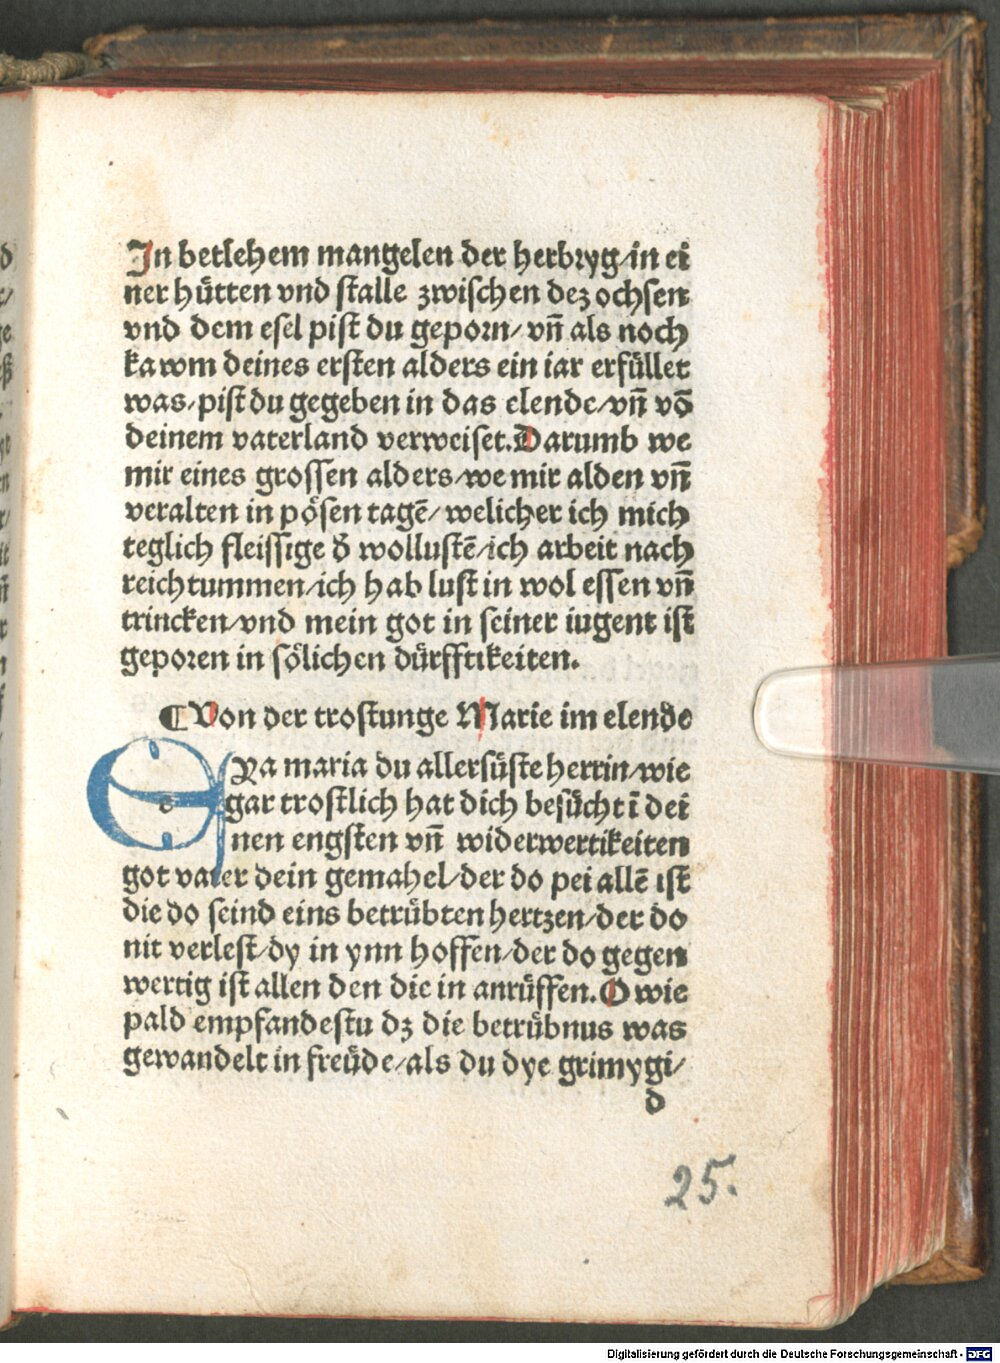 In betlehem mangelen der herbryg/in ei
ner hütten vnd stalle zwischen dez ochsen
vnd dem esel pist du geporn/vn̄ als noch
kawm deines ersten alders ein iar erfüllet
was/pist du gegeben in das elende/vn̄ vō
deinem vaterland verweiset.Darumb we
mir eines grossen alders/we mir alden vn̄
veralten in pösen tagē/welicher ich mich
teglich fleissige d̄ wollustē/ich arbeit nach
reichtummen/ich hab lust in wol essen vn̄
trincken/vnd mein got in seiner iugent ist
geporen in sölichen dürfftikeiten.
¶Von der trostunge Marie im elende
ERa maria du allersüste herrin/wie
gar trostlich hat dich besücht ī dei
nen engsten vn̄ widerwertikeiten
got vater dein gemahel/der do pei allē ist
die do seind eins betrübten hertzen/der do
nit verlest/dy in ynn hoffen/der do gegen
wertig ist allen den die in anrüffen.O wie
pald empfandestu dz die betrübnus was
gewandelt in freüde/als du dye grimygi/
d
25.
Digitalisierung gefördert durch die Deutsche Forschungsgemeinschaft - DFG